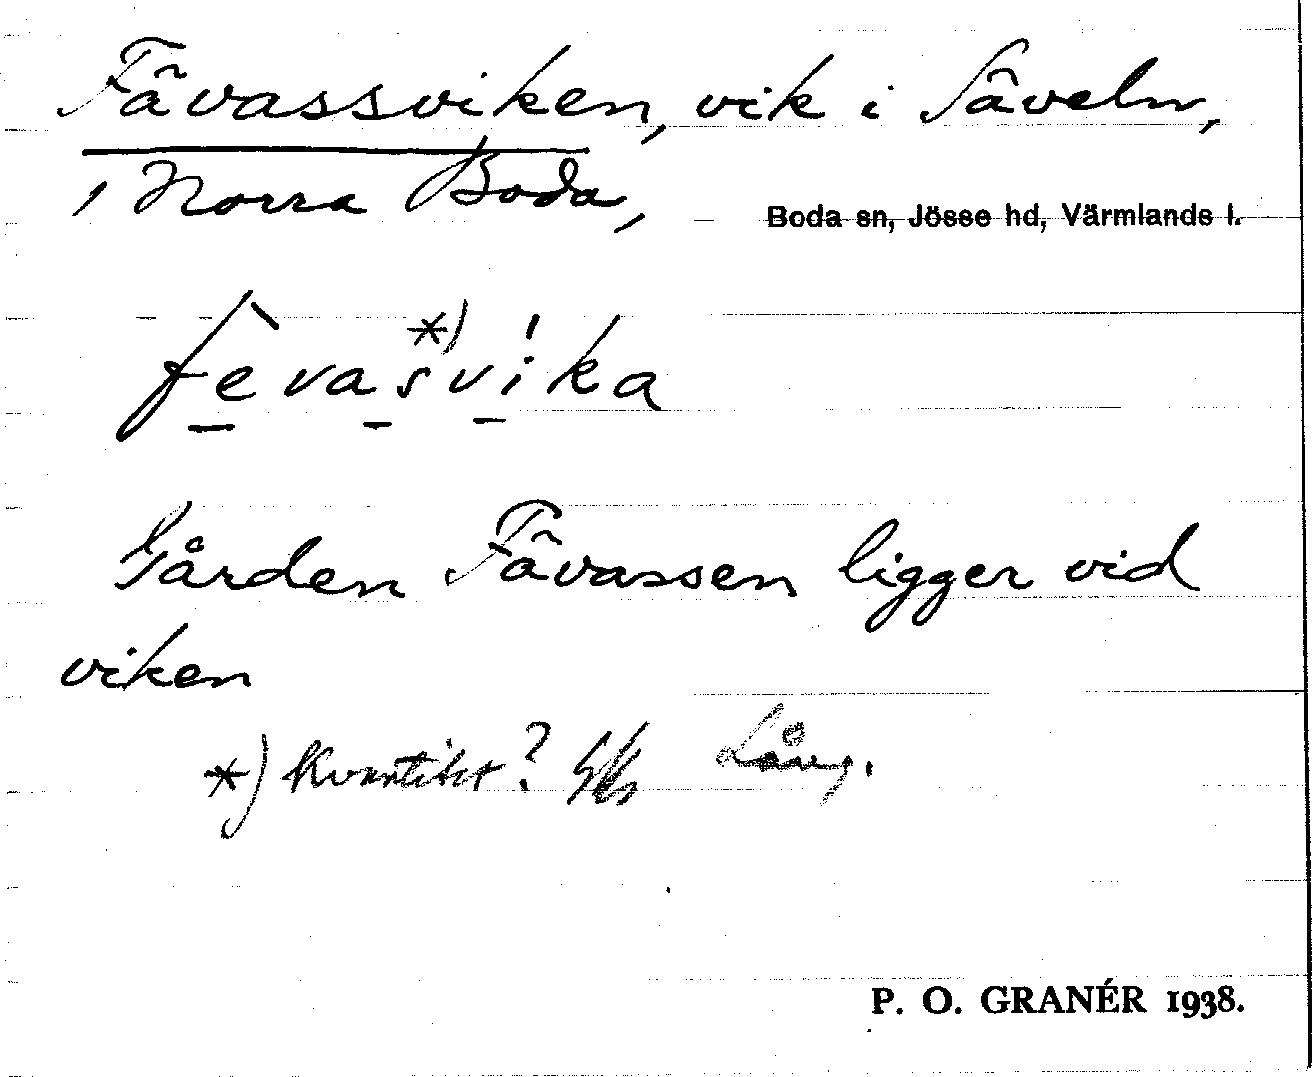 Fävassviken, vik i Säveln,
i Norra Boda,
Boda sn, Jösse hd, Värmlands l.
fèvasv!ika
*)
Gården Fävassen ligger vid
viken
*) kvantitet? Lång.
P. O. GRANÉR 1938.